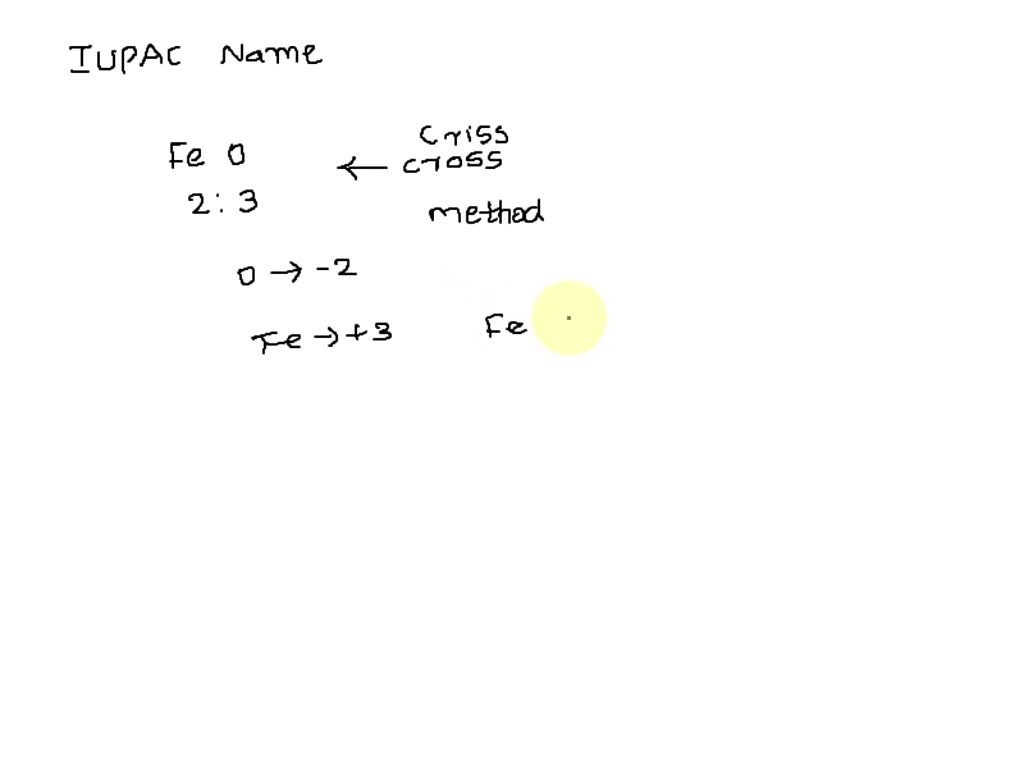 IUPAC Name
Fe O
2 : 3
← criss
cross
method
O → -2
Fe → +3
Fe